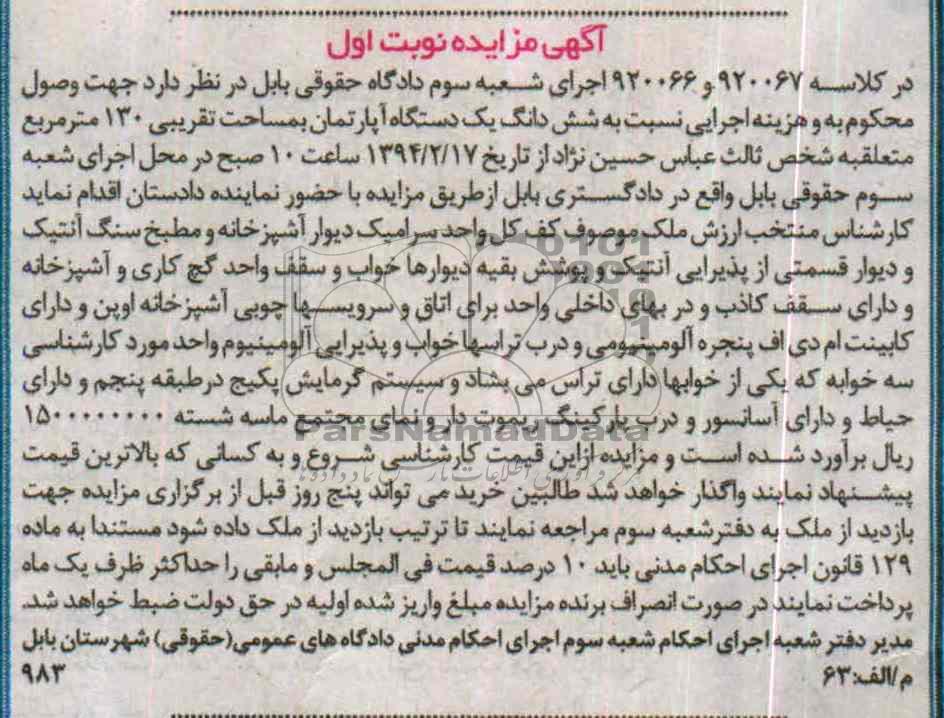 آگهی مزایده نوبت اول
در کلاسه ۹۲۰۰۶۷ و ۹۲۰۰۶۶ اجرای شعبه سوم دادگاه حقوقی بابل در نظر دارد جهت وصول
محکوم به و هزینه اجرایی نسبت به شش دانگ یک دستگاه آپارتمان بمساحت تقریبی ۱۳۰ مترمربع
متعلقبه شخص ثالث عباس حسین نژاد از تاریخ ۱۳۹۴/۲/۱۷ ساعت ۱۰ صبح در محل اجرای شعبه
سوم حقوقی بابل واقع در دادگستری بابل ازطریق مزایده با حضور نماینده دادستان اقدام نماید
کارشناس منتخب ارزش ملک موصوف کف کل واحد سرامیک دیوار آشپزخانه و مطبخ سنگ آنتیک
و دیوار قسمتی از پذیرایی آنتیک و پوشش بقیه دیوارها خواب و سقف واحد گچ کاری و آشپزخانه
و دارای سقف کاذب و در بهای داخلی واحد برای اتاق و سرویسها چوبی آشپزخانه اوپن و دارای
کابینت ام دی اف پنجره آلومینیومی و درب تراسها خواب و پذیرایی آلومینیوم واحد مورد کارشناسی
سه خوابه که یکی از خوابها دارای تراس می بشاد و سیستم گرمایش پکیج درطبقه پنجم و دارای
حیاط و دارای آسانسور و درب پارکینگ ریموت دار و نمای مجتمع ماسه شسته ۱۵۰۰۰۰۰۰۰۰
ریال برآورد شده است و مزایده ازاین قیمت کارشناسی شروع و به کسانی که بالاترین قیمت
پیشنهاد نمایند واگذار خواهد شد طالبین خرید می تواند پنج روز قبل از برگزاری مزایده جهت
بازدید از ملک به دفترشعبه سوم مراجعه نمایند تا ترتیب بازدید از ملک داده شود مستندا به ماده
۱۲۹ قانون اجرای احکام مدنی باید ۱۰ درصد قیمت فی المجلس و مابقی را حداکثر ظرف یک ماه
پرداخت نمایند در صورت انصراف برنده مزایده مبلغ واریز شده اولیه در حق دولت ضبط خواهد شد.
مدیر دفتر شعبه اجرای احکام شعبه سوم اجرای احکام مدنی دادگاه های عمومی(حقوقی) شهرستان بابل
م/الف:۶۳ ۹۸۳
ParsNamadData